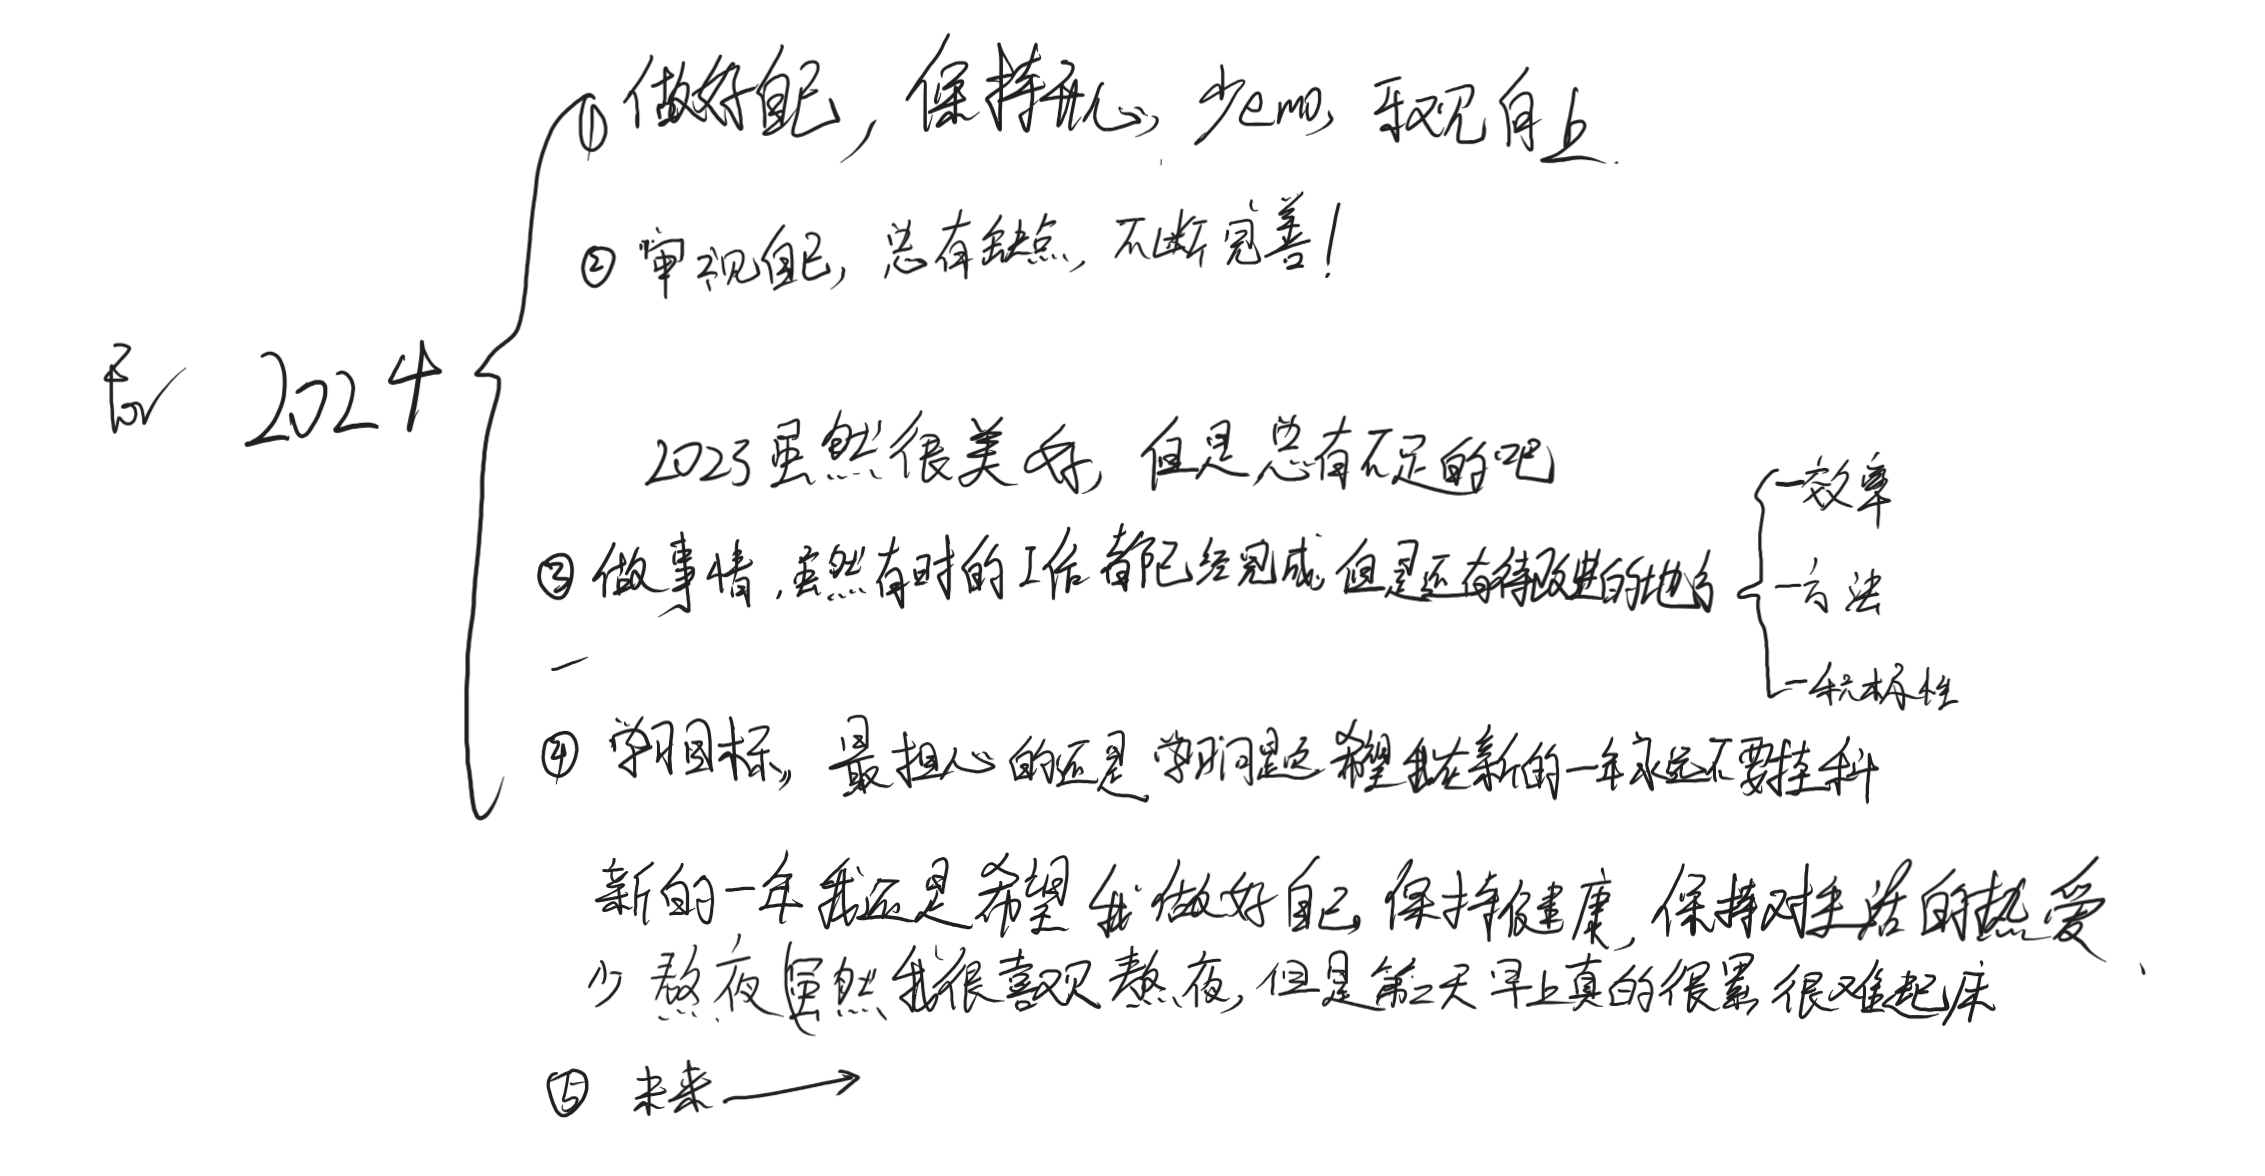 ① 做好自己，保持开心，少emo，乐观向上.
② 审视自己，总有缺点，不断完善！
For 2024
2023虽然很美好，但是总有不足的吧
一效率
③ 做事情，虽然有时的工作都已经完成 但是还有待改进的地方
一方法
一
一积极性
④ 学习目标，最担心的还是学习问题 希望我在新的一年永远不要挂科
新的一年我还是希望我做好自己，保持健康，保持对生活的热爱
少熬夜(虽然我很喜欢熬夜，但是第二天早上真的很累 很难起床
⑤ 未来→